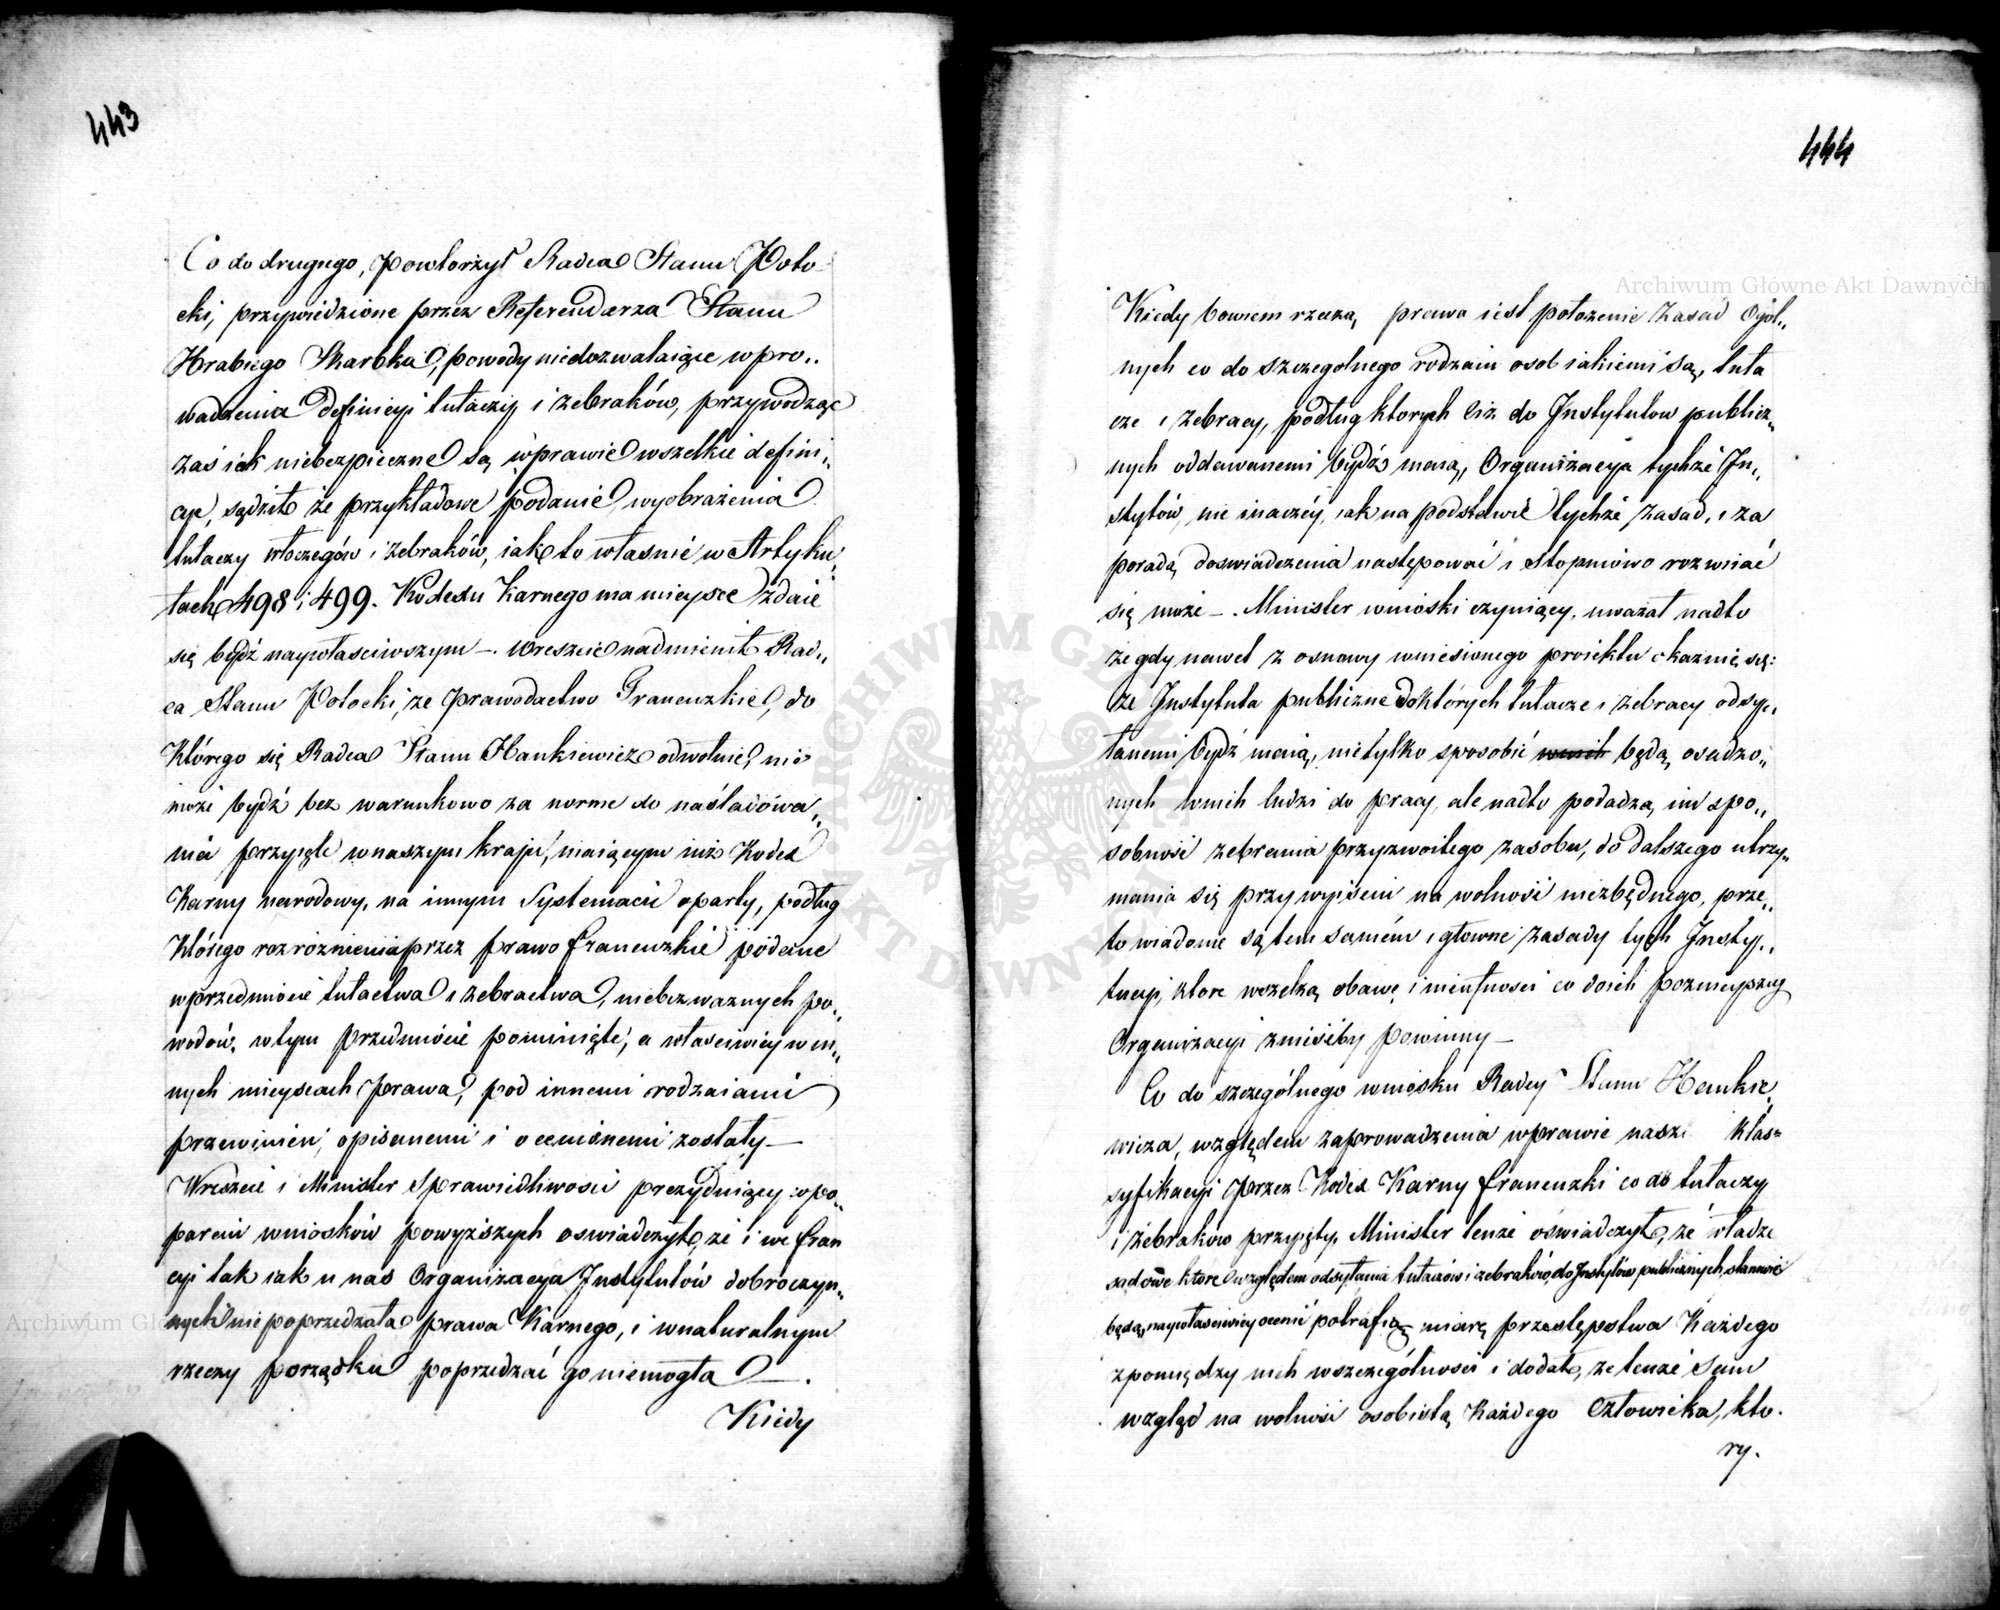 443
Co do drugiego, powtorzył Radca Stanu Poto-
cki, przywiedzione przez Referendarza Stanu
Hrabiego Skarbka, powody niedozwalaiące wpro„
wadzenia definicyi tułaczy i żebraków, przywodząc
zaś iak niebezpieczne są wprawie wszelkie defini„
cye, sądził że przykładowe podanie wyobrażenia
tułaczy włoczegów i żebraków, iak to własnie w Artyku„
łach 498 i 499. Kodexu Karnego ma mieysce zdaie
się bydź naywłasciwszym —. Wreszcie nadmienił Rad„
ca Stanu Potocki, że prawodactwo Francuzkie, do
którego się Radca Stanu Hankiewicz odwołuie, nie
może bydź bez warunkowo za norme do naśladowa„
nia przyięte w naszym kraju, maiącym iuż Kodex
Karny narodowy, na innym Systemacie oparty, podług
którego rozróżnienia przez prawo francuzkie podane
w przedmiocie tułactwa i żebractwa, niebez ważnych po„
wodów, w tym przedmiocie pominięte, a własciwiey w in„
nych mieyscach prawa, pod innemi rodzaiami
przewinień, opisanemi i ocenionemi zostały —
Wreszcie i Minister Sprawiedliwosci prezyduiący w po„
parciu wniosków powyższych oswiadczył, że i we fran
cyi tak iak u nas Organizacya Instytutów dobroczyn„
nych nie poprzedzała prawa Karnego, i w naturalnym
rzeczy porządku poprzedzać go niemogła —.
Kiedy
444
Kiedy bowiem rzeczą prawa iest położenie zasad Ogól„
nych co do szczegolnego rodzaiu osob iakiemi są, tuła
cze i żebracy, podług ktorych ciż do Instytutow publicz„
nych oddawanemi bydź maią, Organizacya tychże In„
stytów, nie inaczéy iak na podstawie tychże zasad, i za
poradą doswiadczenia następować i stopniowo rozwiiać
się może —. Minister wnioski czyniący, uważał nadto
że gdy nawet z osnowy wniesionego proiektu okazuie się:
że Instytuta publiczne do których tułacze i żebracy odsy„
łanemi bydź maią, nie tylko sposobić wnich będą osadzo„
nych wnich ludzi do pracy, ale nadto podadzą im spo„
sobność zebrania przyzwoitego zasobu, do dalszego utrzy„
mania się przy wyisciu na wolność niezbędnego, prze„
to wiadome są tem samém i głowne zasady tych Insty„
tucyi, ktore wszelką obawę i nieufność co do ich poznieyszey
Organizacyi znieśćby powinny —
Co do szczególnego wniosku Radcy Stanu Hankie„
wicza, względem zaprowadzenia w prawie nasze klas„
syfikacyi przez Kodex Karny francuzki co do tułaczy
i żebraków przyięty, Minister tenże oświadczył, że władze
sądowe ktore względem odsyłania tułaczów i żebraków, do Instytów publicznych, stanowić
będą, naywłasciwiey ocenić potrafią miarę przestępstwa każdego
z pomiędzy nich w szczególności i dodał, że tenże sam
wzgląd na wolność osobistą każdego Człowieka, kto-
ry.
Archiwum Główne Akt Dawnych
ARCHIWUM GŁÓWNE AKT DAWNYCH